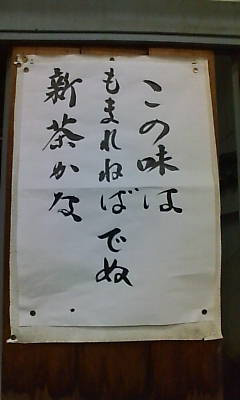 この味は
もまれねばでぬ
新茶かな